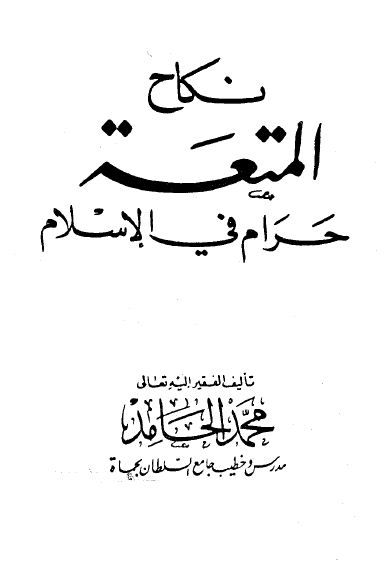 نكاح
المتعة
حرام في الإسلام
تأليف الفقير إليه تعالى
محمد الحامد
مدرس وخطيب جامع السلطان بحماة